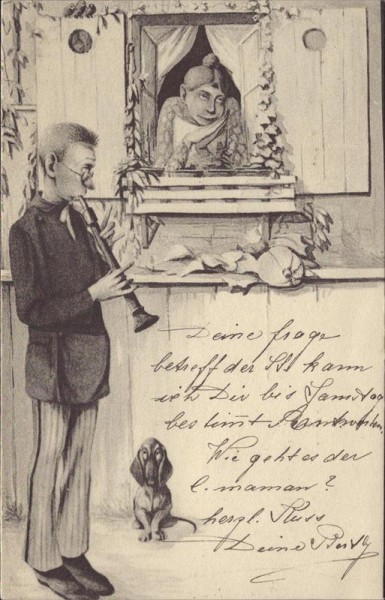 Deine frage
betreff der Stl kann
ich Dir bis Samstag
bestimt
Wie geht es der
l. maman?
herzl. Kuss
Deine